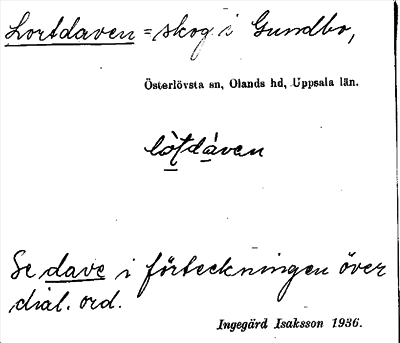 Lortdaven = skog i Gundbo,
Österlövsta sn, Olands hd, Uppsala län.
lòtdáven
Se dave i förteckningen över
dial. ord.
Ingegärd Isaksson 1936.